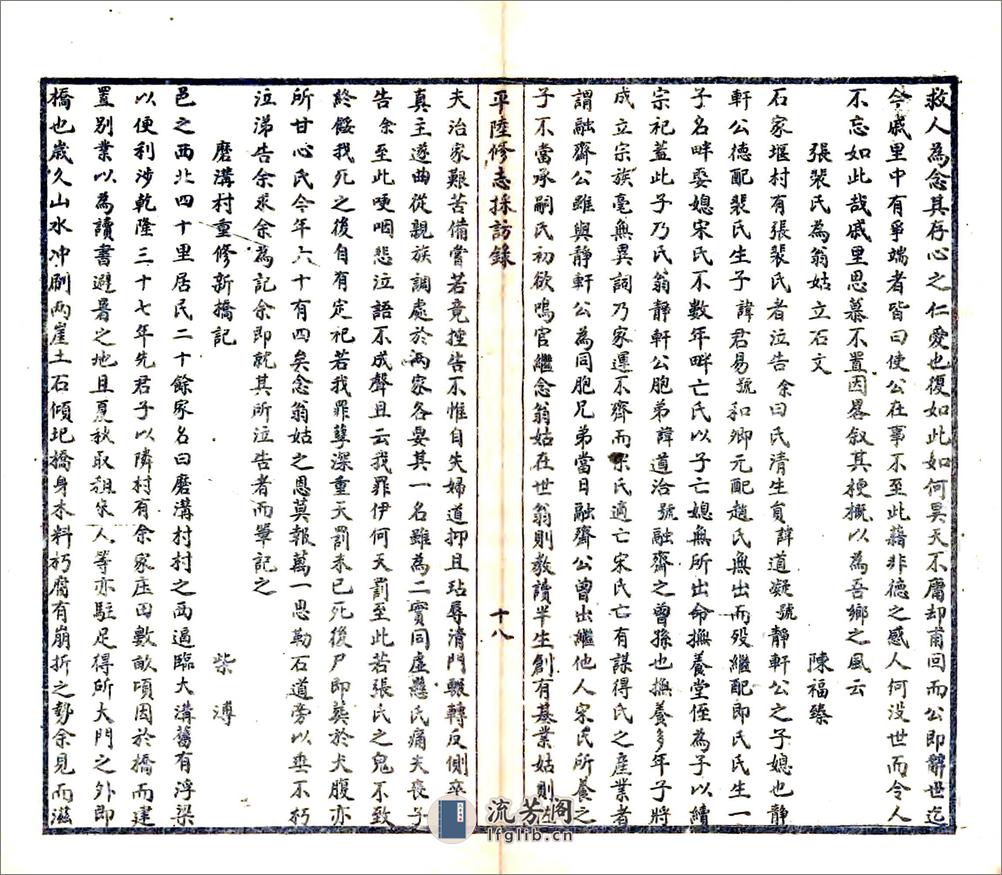 救人為念其存心之仁愛也復如此如何昊天不庸却甫回而公即辭世迄
今戚里中有爭端者皆曰使公在事不至此藉非德之感人何没世而令人
不忘如此哉戚里思慕不置因畧叙其梗概以為吾鄉之風云
張裴氏為翁姑立石文　陳福臻
石家堰村有張裴氏者泣告余曰氏清生員諱道凝號靜軒公之子媳也靜
軒公德配裴氏生子諱君易號和卿元配趙氏無出而殁繼配即氏氏生一
子名畔娶媳宋氏不數年畔亡氏以子亡媳無所出命撫養堂侄為子以續
宗祀蓋此子乃氏翁靜軒公胞弟諱道洽號融齋之曾孫也撫養多年子將
成立宗族毫無異詞乃家運不齊而宋氏適亡宋氏亡有謀得氏之産業者
謂融齋公雖與靜軒公為同胞兄弟當日融齋公曾出繼他人宋氏所養之
子不當承嗣氏初欲鳴官繼念翁姑在世翁則教讀半生創有基業姑則
平陸修志採訪錄
十八
夫治家艱苦備嘗若竟控告不惟自失婦道抑且玷辱清門輾轉反側卒
真主遂曲從親族調處於兩家各娶其一名雖為二實同虛懸氏痛夫喪子
告余至此哽咽悲泣語不成聲且云我罪伊何天罰至此若張氏之鬼不致
終餒我死之後自有定祀若我罪孽深重天罰未已死後尸即葬於犬腹亦
所甘心氏今年六十有四矣念翁姑之恩莫報萬一思勒石道旁以垂不朽
泣涕告余求余為記余即就其所泣告者而筆記之
磨溝村重修新橋記　柴溥
邑之西北四十里居民二十餘家名曰磨溝村村之西逼臨大溝舊有浮梁
以便利涉乾隆三十七年先君子以隣村有余家庄田數畝頃因於橋而建
置别業以為讀書避暑之地且夏秋取租家人等亦駐足得所大門之外即
橋也歲久山水冲刷兩崖土石傾圮橋身木料朽腐有崩折之勢余見而滋
流芳閣
lfglib.cn